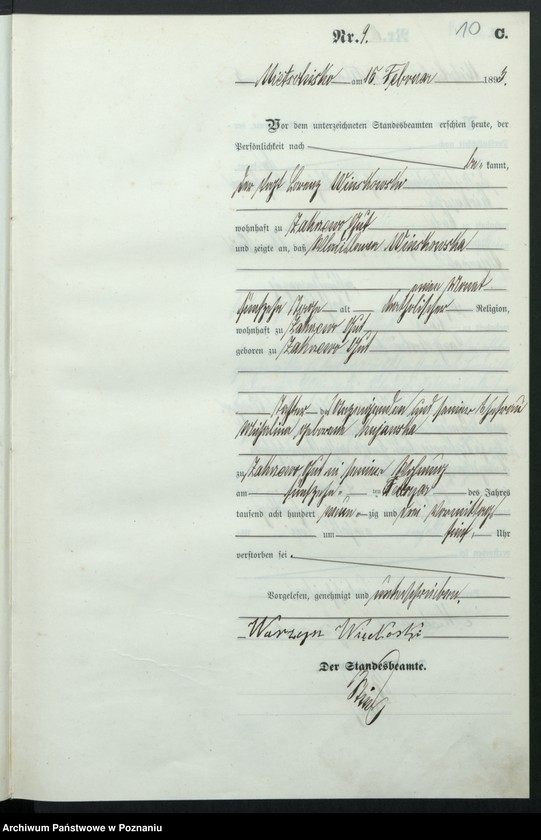 Nr. 9. 10 C.
am 15. Februar 1893.
Vor dem unterzeichneten Standesbeamten erschien heute, der
Persönlichkeit nach
be kannt,
der Vogt Lorenz
wohnhaft zu Zakrzewo Gut
und zeigte an, daß
einen Monat
fünfzehn Tage alt katholischer Religion,
wohnhaft zu Zakrzewo Gut
geboren zu Zakrzewo Gut
Tochter des Anzeigenden und seiner Ehefrau
geborene
zu Zakrzewo Gut in seiner Wohnung
am fünfzehn ten Februar des Jahres
tausend acht hundert neun zig und drei Vormittags
um fünf Uhr
verstorben sei.
Vorgelesen, genehmigt und unterschrieben.
Wawrzyn
Der Standesbeamte.
Archiwum Państwowe w Poznaniu